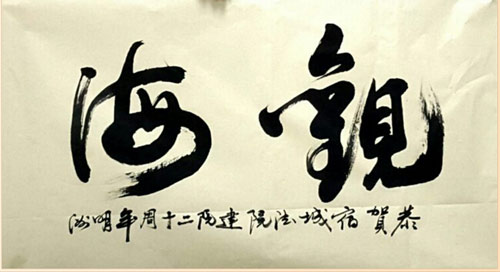 觀海
恭賀宿城法院建院二十周年明